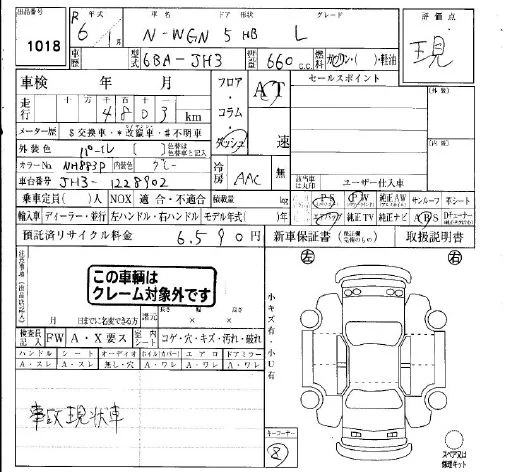 出品番号 R 年式 車名 ドア 形状 グレード 評価点
1018 6 1月 N-WGN 5 HB L 現
車歴 型式 6BA-JH3 排気量 660 c.c. 燃料 ガソリン・( )・軽油
車検 年 月 フロア・コラム・ダッシュ AT 速 セールスポイント (外装)
走行 十万 万 千 百 十 一
4803 km
メーター歴 $ 交換車・* 改竄車・# 不明車
外装色 パール [ ] 色替は色替車と記入
カラーNo. NH883P 内装色 グレー [ ] 冷房 AAC 無 該当車は丸印 ユーザー仕入車 (内装)
車台番号 JH3-1228902
乗車定員( )人 NOX 適合・不適合 積載量 kg PS PW 純正AW サンルーフ 本シート
輸入車 ディーラー・並行 左ハンドル・右ハンドル モデル年式( )年 エアバッグ 純正TV 純正ナビ ABS Dチューナー
預託済リサイクル料金 6,590円 新車保証書 取扱説明書
この車輌は
クレーム対象外です
月 日までに名変できる方 諸元 長さ cm 幅 cm 高さ cm
左 右
小キズ有・小U有
検査員記入 FW A・X要ス 室内シート コゲ・穴・キズ・汚れ・破れ
ハンドル シート オーディオ ホイル(カバー) エアロ ドアミラー
A・スレ A・スレ 無し・穴 A・ワレ A・ワレ A・ワレ
事故現状車
キーコーナー
8
スペア又は
修理キット